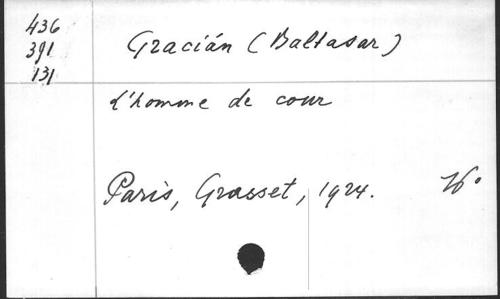 436
391
131
Gracián (Baltasar)
L'homme de cour
Paris, Grasset, 1924.